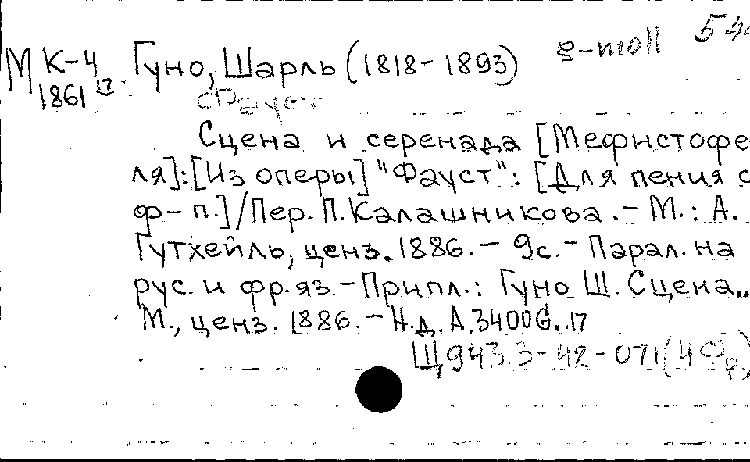 g-moll 54
М К-4 Гуно, Шарль (1818-1893)
1861
Фауст
Сцена и серенада [Мефистофе
ля]:[Из оперы] "Фауст": [Для пения с
ф-п.]/Пер. П. Калашникова. - М.: А.
Гутхейль, ценз. 1886. - 9с. - Парал. на
рус. и фр. яз. - Припл.: Гуно Ш. Сцена..
М., ценз. 1886. - Н.д. А.3400G.17
Щ943.3-42-071(4Фр)